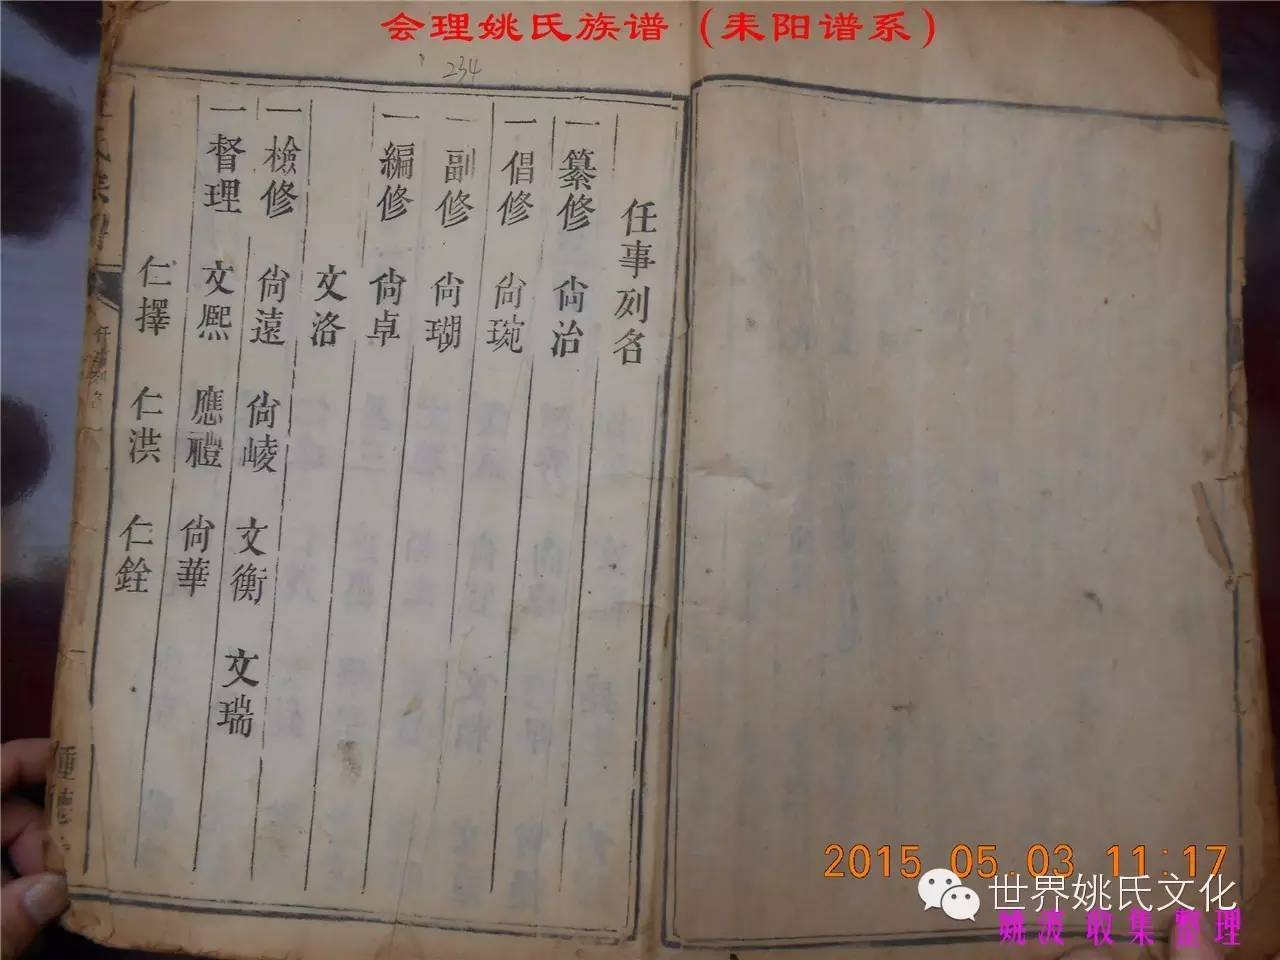 会理姚氏族谱（耒阳谱系）
234
任事列名
一纂修 尙治
一倡修 尙琬
一副修 尙瑚
一編修 尙卓
文洛
一檢修 尙遠 尙崚 文衡 文瑞
一督理 文熙 應禮 尙華
仁擇 仁洪 仁銓
任事列名
2015.05.03 11:17
世界姚氏文化
姚波 收集整理